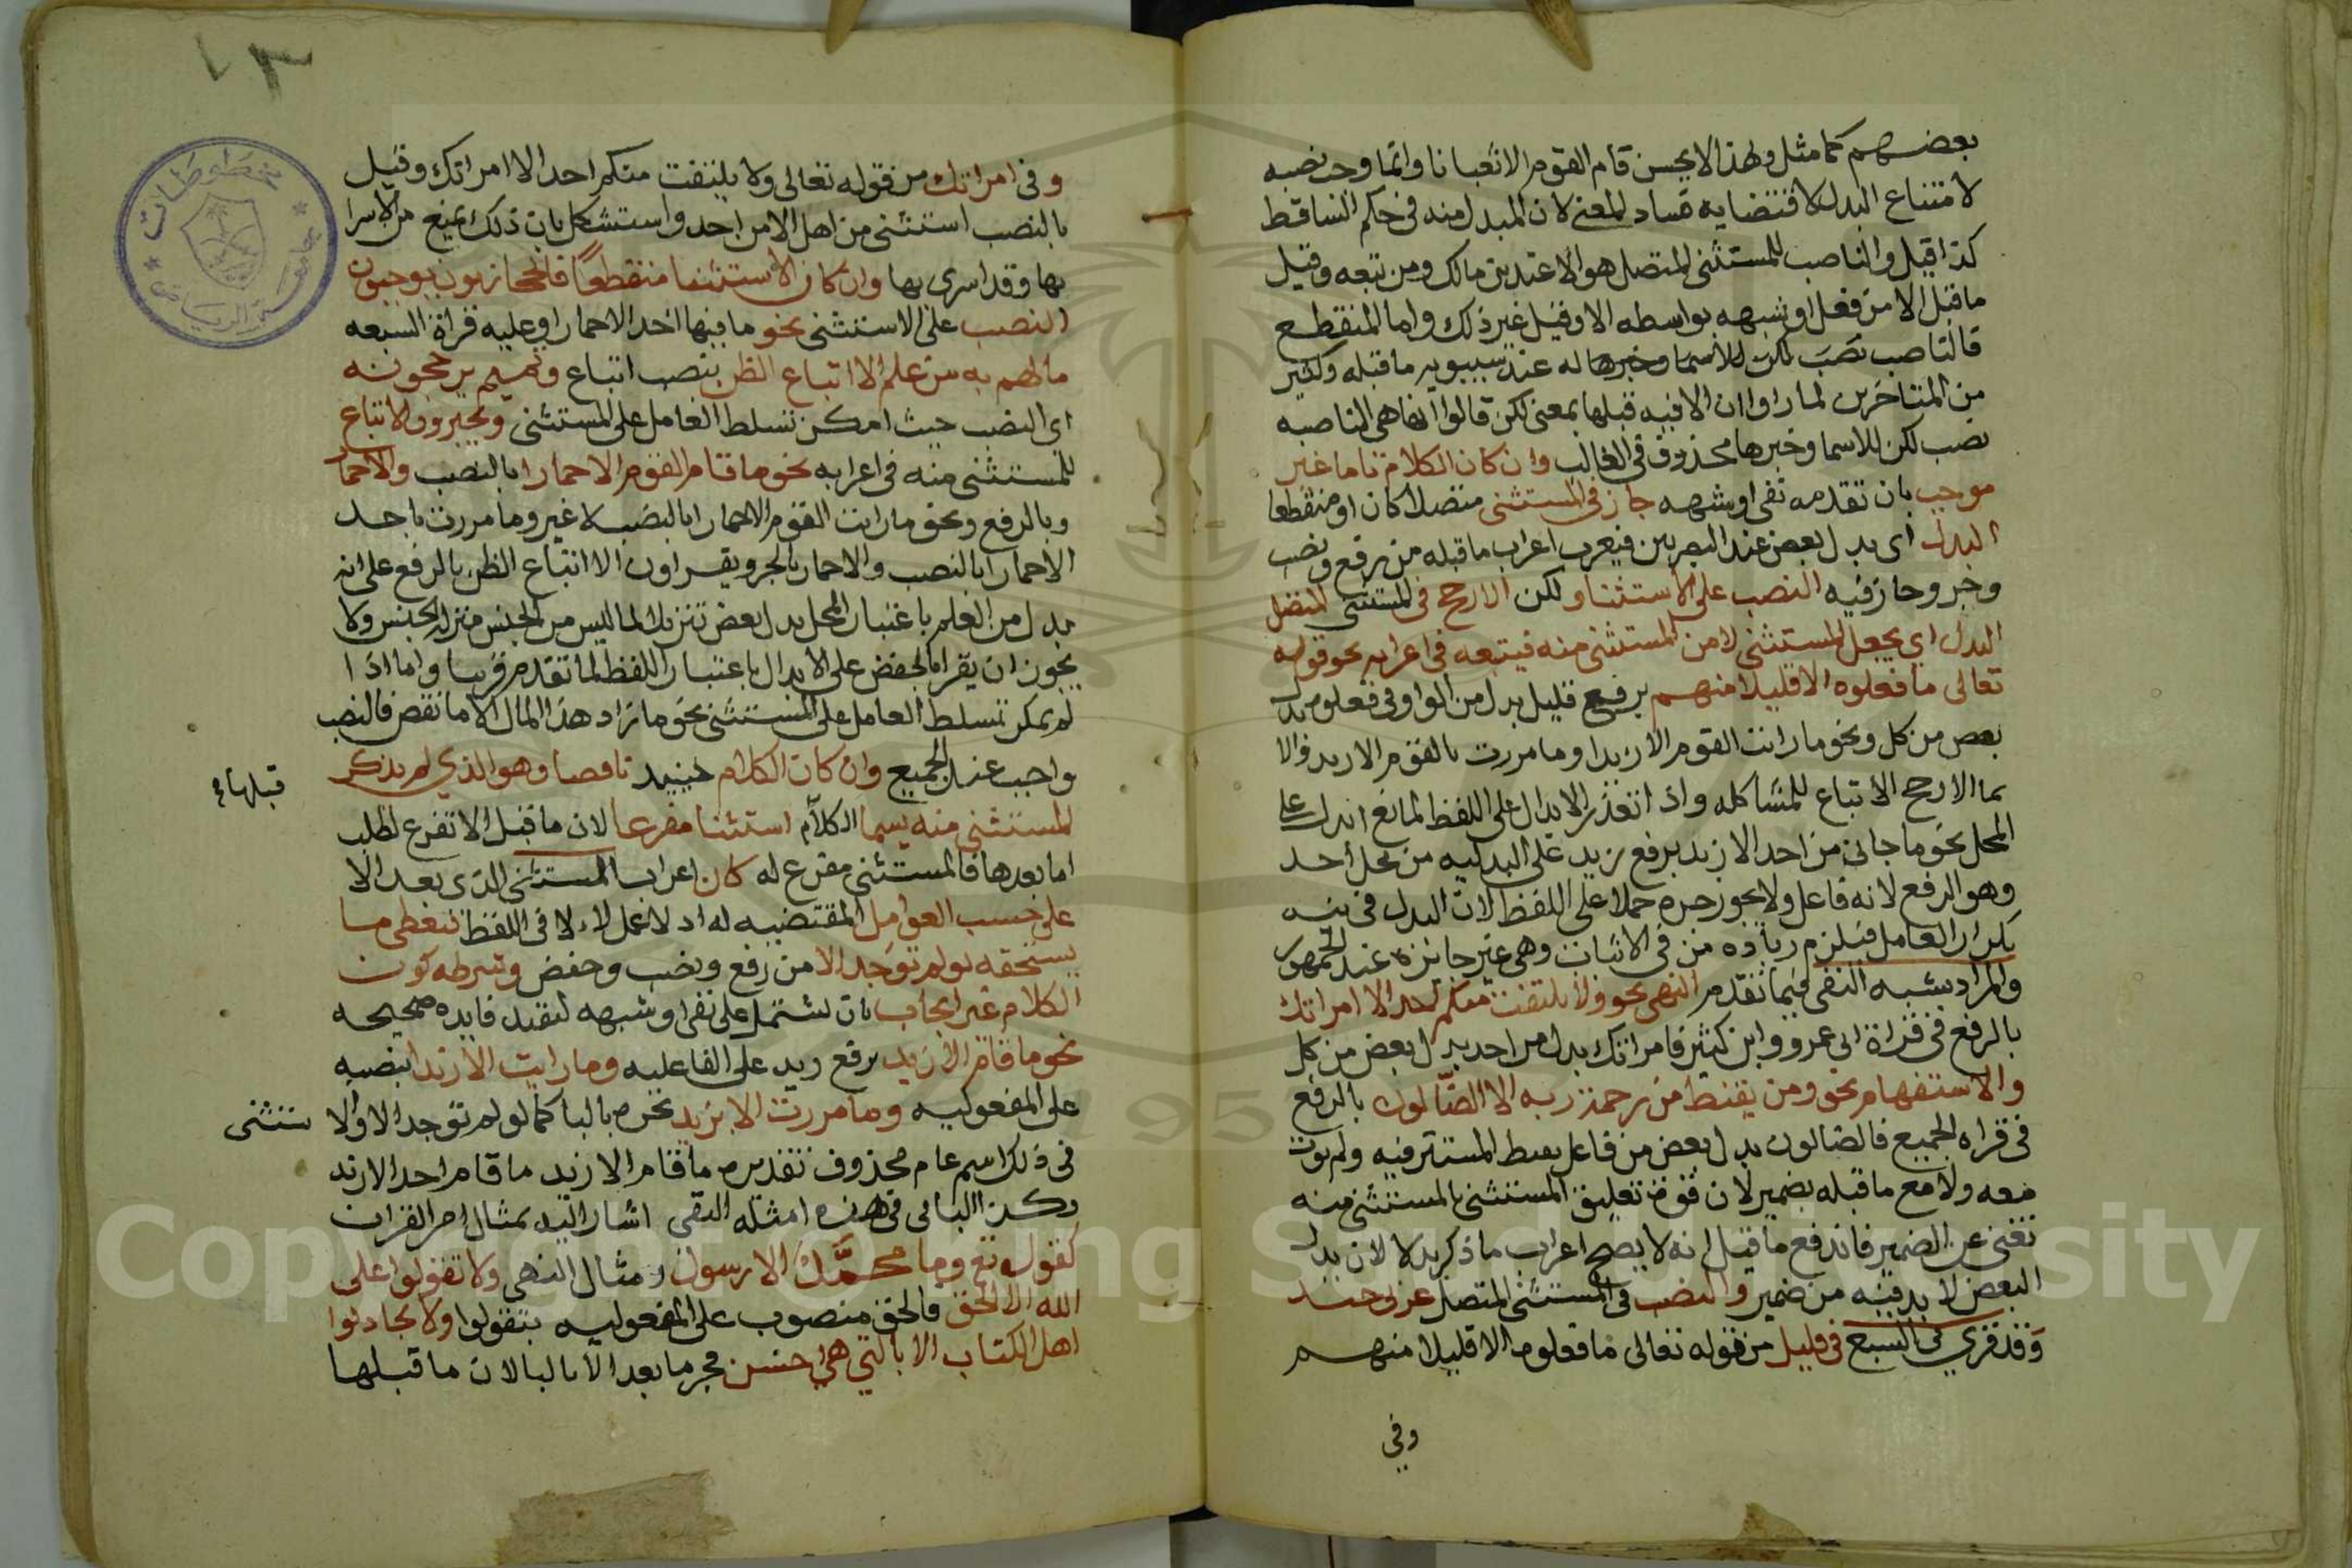 بعضهم كما مثل ولهذا لا يحسن قام القوم الا ثعبانا وانما وجب نصبه
لامتناع البدل لاقتضايه فساد المعنى لان المبدل منه في حكم الساقط
كذا قيل والناصب للمستثنى المتصل هو الا عند بن مالك ومن تبعه وقيل
ما قبل الا من فعل او شبهه بواسطه الا وقيل غير ذلك واما المنقطع
فالناصب نصب لكن للاسما وخبرها له عند سيبويه ما قبله وكثير
من المتاخرين لما راوا ان الا فيه قبلها بمعنى لكن قالوا انها هي الناصبه
نصب لكن للاسما وخبرها محذوف في الغالب وان كان الكلام تاما غير
موجب بان تقدمه نفي او شبهه جاز في المستثنى متصلا كان او منقطعا
البدل اي بدل بعض عند البصريين فيعرب اعراب ما قبله من رفع ونصب
وجر وجاز فيه النصب على الاستثنا ولكن الارجح في المستثنى المتصل
البدل اي يجعل المستثنى لا من المستثنى منه فيتبعه في اعرابه نحو قوله
تعالى ما فعلوه الا قليلا منهم برفع قليل بدل من الواو في فعلوه بدل
بعض من كل ونحو ما رايت القوم الا زيدا وما مررت بالقوم الا زيد والا
بما الارجح الاتباع للمشاكله واذا تعذر الابدال على اللفظ لمانع ابدل على
المحل نحو ما جاني من احد الا زيد برفع زيد على البدليه من محل احد
وهو الرفع لانه فاعل ولا يجوز جره حملا على اللفظ لان البدل في نيه
تكرار العامل فيلزم زياده من في الاثبات وهي غير جائزه عند الجمهور
والمراد بشبه النفي فيما تقدم النهي نحو ولا يلتفت منكم احد الا امراتك
بالرفع في قراة ابى عمرو وابن كثير فامراتك بدل من احد بدل بعض من كل
والاستفهام نحو ومن يقنط من رحمة ربه الا الضالون بالرفع
في قراه الجميع فالضالون بدل بعض من فاعل يقنط المستتر فيه ولم يوت
معه ولا مع ما قبله بضمير لان قوة تعليق المستثنى بالمستثنى منه
تغني عن الضمير فاندفع ما قيل انه لا يصح اعراب ما ذكر بدلا لان بدل
البعض لا بد فيه من ضمير والنصب في المستثنى المتصل عربي جيد
وقد قري في السبع في قليل من قوله تعالى ما فعلوه الا قليلا منهم
وفي
وفي امراتك من قوله تعالى ولا يلتفت منكم احد الا امراتك وقيل
بالنصب استثنى من اهل لا من احد واستشكل بان ذلك يمنع من الاسرا
بها وقد اسرى بها وان كان الاستثنا منقطعا فالحجازيون يوجبون
النصب على الاستثنى نحو ما فيها احد الا حمارا وعليه قراة السبعه
ما لهم به من علم الا اتباع الظن بنصب اتباع وتميم يرجحونه
اي النصب حيث امكن تسلط العامل على المستثنى ويجيزون الاتباع
للمستثنى منه في اعرابه نحو ما قام القوم الا حمارا بالنصب والا حمار
وبالرفع ونحو ما رايت القوم الا حمارا بالنصب لا غير وما مررت باحد
الا حمارا بالنصب والا حمار بالجر ويقراون الا اتباع الظن بالرفع على انه
بدل من العلم باعتبار المحل بدل بعض تنزيلا لما ليس من الجنس منزله الجنس ولا
يجوز ان يقرا بالخفض على الابدال باعتبار اللفظ لما تقدم قريبا واما اذا
لم يمكن تسلط العامل على المستثنى نحو ما زاد هذا المال الا ما نقص فالنصب
واجب عند الجميع وان كان الكلام حينيد ناقصا وهو الذي لم يذكر
قبلها
المستثنى منه يسما الكلام استثنا مفرعا لان ما قبل الا تفرع لطلب
اما بعدها فالمستثنى مفرع له كان اعراب المستثنى الذي بعد الا
على حسب العوامل المقتضيه له اد لا عمل لا لا في اللفظ فيعطى ما
يستحقه لو لم توجد الا من رفع ونصب وخفض وشرطه كون
الكلام غير ايجاب بان يشتمل على نفي او شبهه لتفيد فايده صحيحه
نحو ما قام الا زيد برفع زيد على الفاعليه وما رايت الا زيدا بنصبه
على المفعوليه وما مررت الا بزيد بجره بالبا كما لو لم توجد الا والا
ستثنى
في ذلك اسم عام محذوف تقديره ما قام الا زيد ما قام احد الا زيد
وكذا الباقي في هذه امثله النفي اشار اليه بمثال اخر القران
كقوله تع وما محمد الا رسول ومثال النهي ولا تقولوا على
الله الا الحق فالحق منصوب على المفعوليه بتقولوا ولا تجادلوا
اهل الكتاب الا بالتي هي احسن فجر ما بعد الا بالبا لان ما قبلها
مخطوطات
جامعة الرياض
Copyright © King Saud University